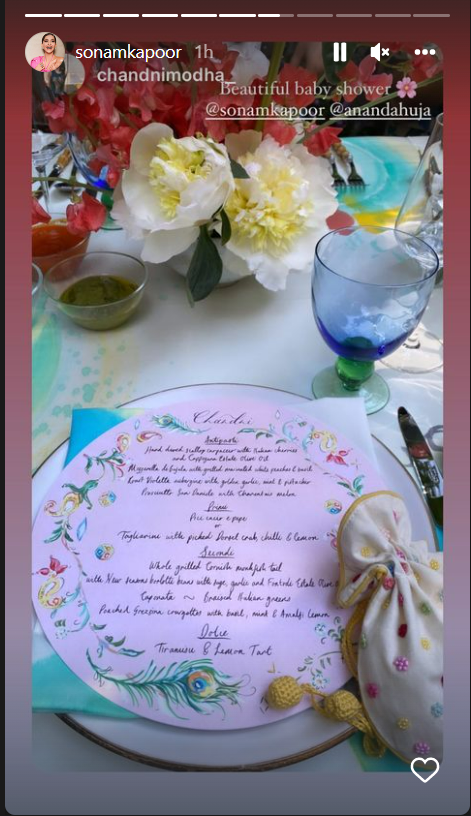 sonamkapoor 1h
chandnimodha_
Beautiful baby shower
@sonamkapoor @anandahuja
Chandni
Antipasti
Hand dived scallop carpaccio with Italian cherries
and Capezzana Estate Olive Oil
Mozzarella di bufala with grilled marinated white peaches & basil
Violette aubergine with golden garlic, mint & pistachio
Prosciutto San Daniele with Charentais melon
Primi
Pici cacio e pepe
or
Tagliarini with picked Dorset crab, chilli & lemon
Secondi
Whole grilled Cornish monkfish tail
with New Season's borlotti beans with sage, garlic and Fontodi Estate Olive
~ Braised Italian greens
courgettes with basil, mint & Amalfi lemon
Dolce
Tiramisu & Lemon Tart